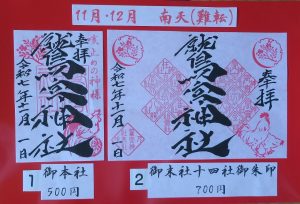 11月・12月 南天(難転)
奉拝
鷲宮神社
令和七年十一月一日
止めの神様
鷲宮神社
令和七年十一月一日
1
御本社
500円
2
御末社十四社御朱印
700円